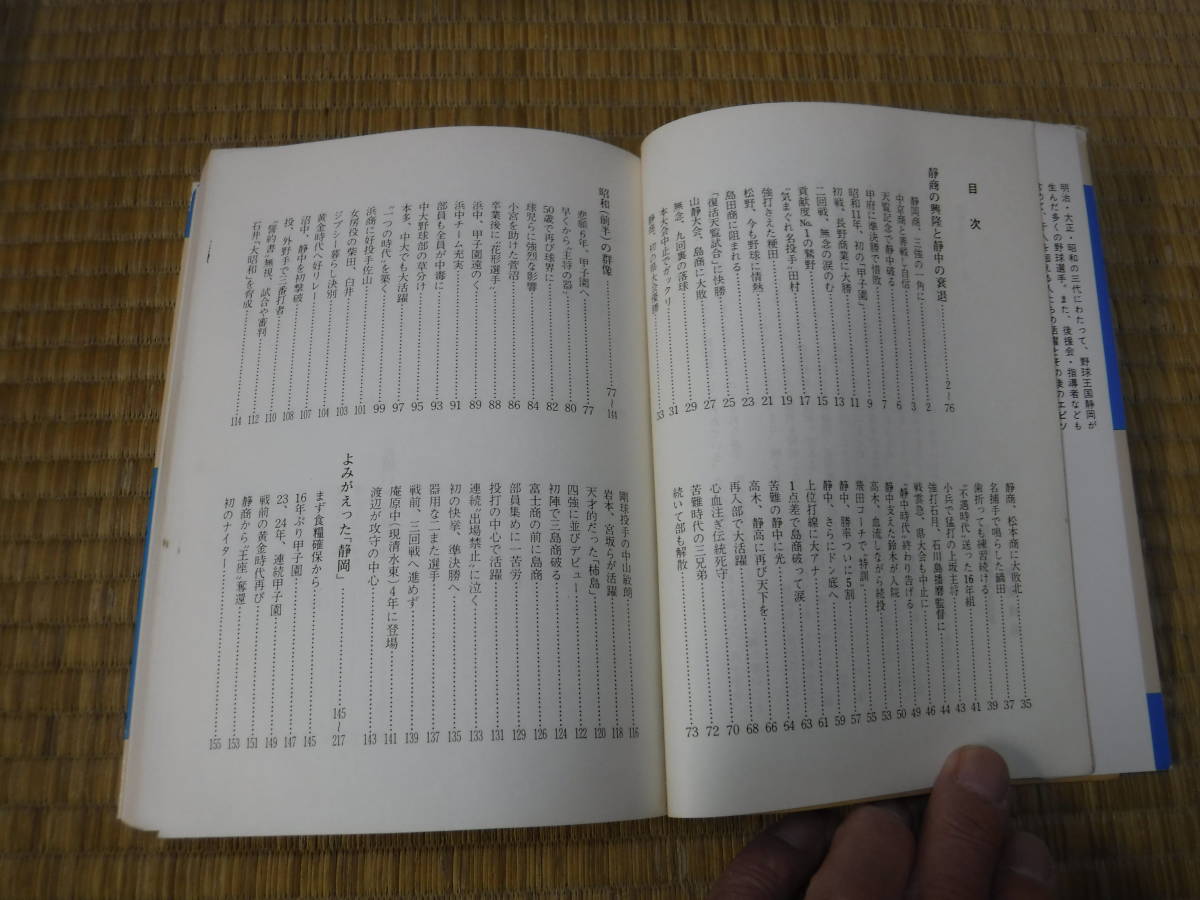 明治・大正・昭和の三代にわたって、野球王国静岡が
生んだ多くの野球選手。また、後援会・指導者なども
目次
静商の興隆と静中の衰退……2〜76
静岡商、三強の一角に……2
中京商と善戦し自信……3
天覧記念で静中破る……6
甲府に準決勝で惜敗……7
昭和11年、初の「甲子園」……9
初戦、長野商業に大勝……11
二回戦、無念の涙のむ……13
貢献度No.1の鷲野……15
“気まぐれ名投手”田村……17
強打さえた稉田……19
松野、今も野球に情熱……21
島田商に阻まれる……23
「復活天覧試合」に快勝……25
山静大会、島商に大敗……27
無念、九回裏の落球……29
本大会中止でガックリ……31
静商、初の県大会優勝……33
静商、松本商に大敗北……35
名捕手で鳴らした鍋田……37
歯折っても練習続ける……39
“不遇時代”送った16年組……41
小兵で猛打の上坂主将……43
強打石月、石川島播磨監督に……44
戦雲急、県大会も中止に……46
“静中時代”終わり告げる……49
静中支えた鈴木が入院……50
高木、血流しながら続投……53
飛田コーチで“特訓”……55
静中、勝率ついに5割……57
静中、さらにドン底へ……59
上位打線に大アナ……61
1点差で島商破って涙……63
苦難の静中に光……64
高木、静高に再び天下を……66
再入部で大活躍……68
心血注ぎ伝統死守……70
苦難時代の三兄弟……72
続いて部も解散……73
昭和(前半)の群像……77〜144
悲願6年、甲子園へ……77
早くから“主将の器”……80
50歳で再び球界に……82
球児らに強烈な影響……84
小宮を助けた菅沼……86
卒業後に“花形選手”……88
浜中、甲子園遠のく……89
浜中チーム充実……91
部員も全員が中毒に……93
中大野球部の草分け……95
本多、中大でも大活躍……97
“一つの時代”を築く……99
浜商に好投手佐山……101
女房役の柴田、白井……103
ジプシー暮らし決別……104
黄金時代へ好リレー……106
沼中、静中を初撃破……107
投、外野手で三番打者……108
“誓約書”無視、試合や審判……110
石井「大昭和」を育成……112
……114
剛球投手の中山敏朗……116
岩本、宮坂らが活躍……118
天才的だった「柿島」……120
四強に並びデビュー……122
初陣で三島商破る……124
富士商の前に島商……126
部員集めに一苦労……129
投打の中心で活躍……131
連続“出場禁止”に泣く……133
初の快挙、準決勝へ……135
器用な二また選手……137
戦前、三回戦へ進めず……139
庵原中(現清水東)4年に登場……141
渡辺が攻守の中心……143
よみがえった「静岡」……145〜217
まず食糧確保から……145
16年ぶり甲子園……147
23、24年、連続甲子園……149
戦前の黄金時代再び……151
静商から“王座”奪還……153
初のナイター……155